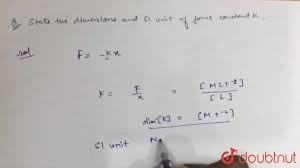 Q. State the dimensions and SI unit of force constant k.
sol
F = -kx
K = F/x = [MLT⁻²]/[L]
dim[K] = [MT⁻²]
SI unit N
doubtnut